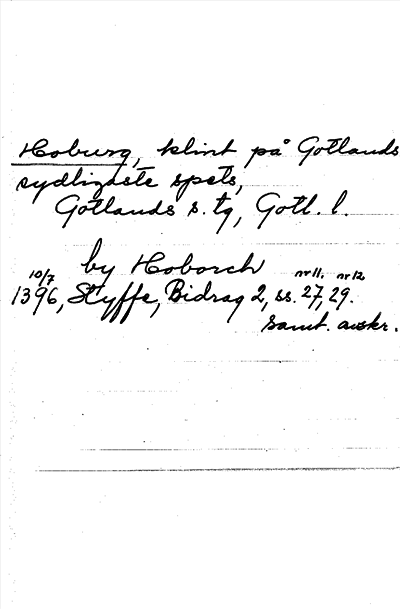 Hoburg, klint på Gotlands
sydligaste spets,
Gotlands s. tg, Gotl. l.
by Hoborch
10/7 nr 11. nr 12
1396, Styffe, Bidrag 2, ss. 27, 29.
samt. avskr.